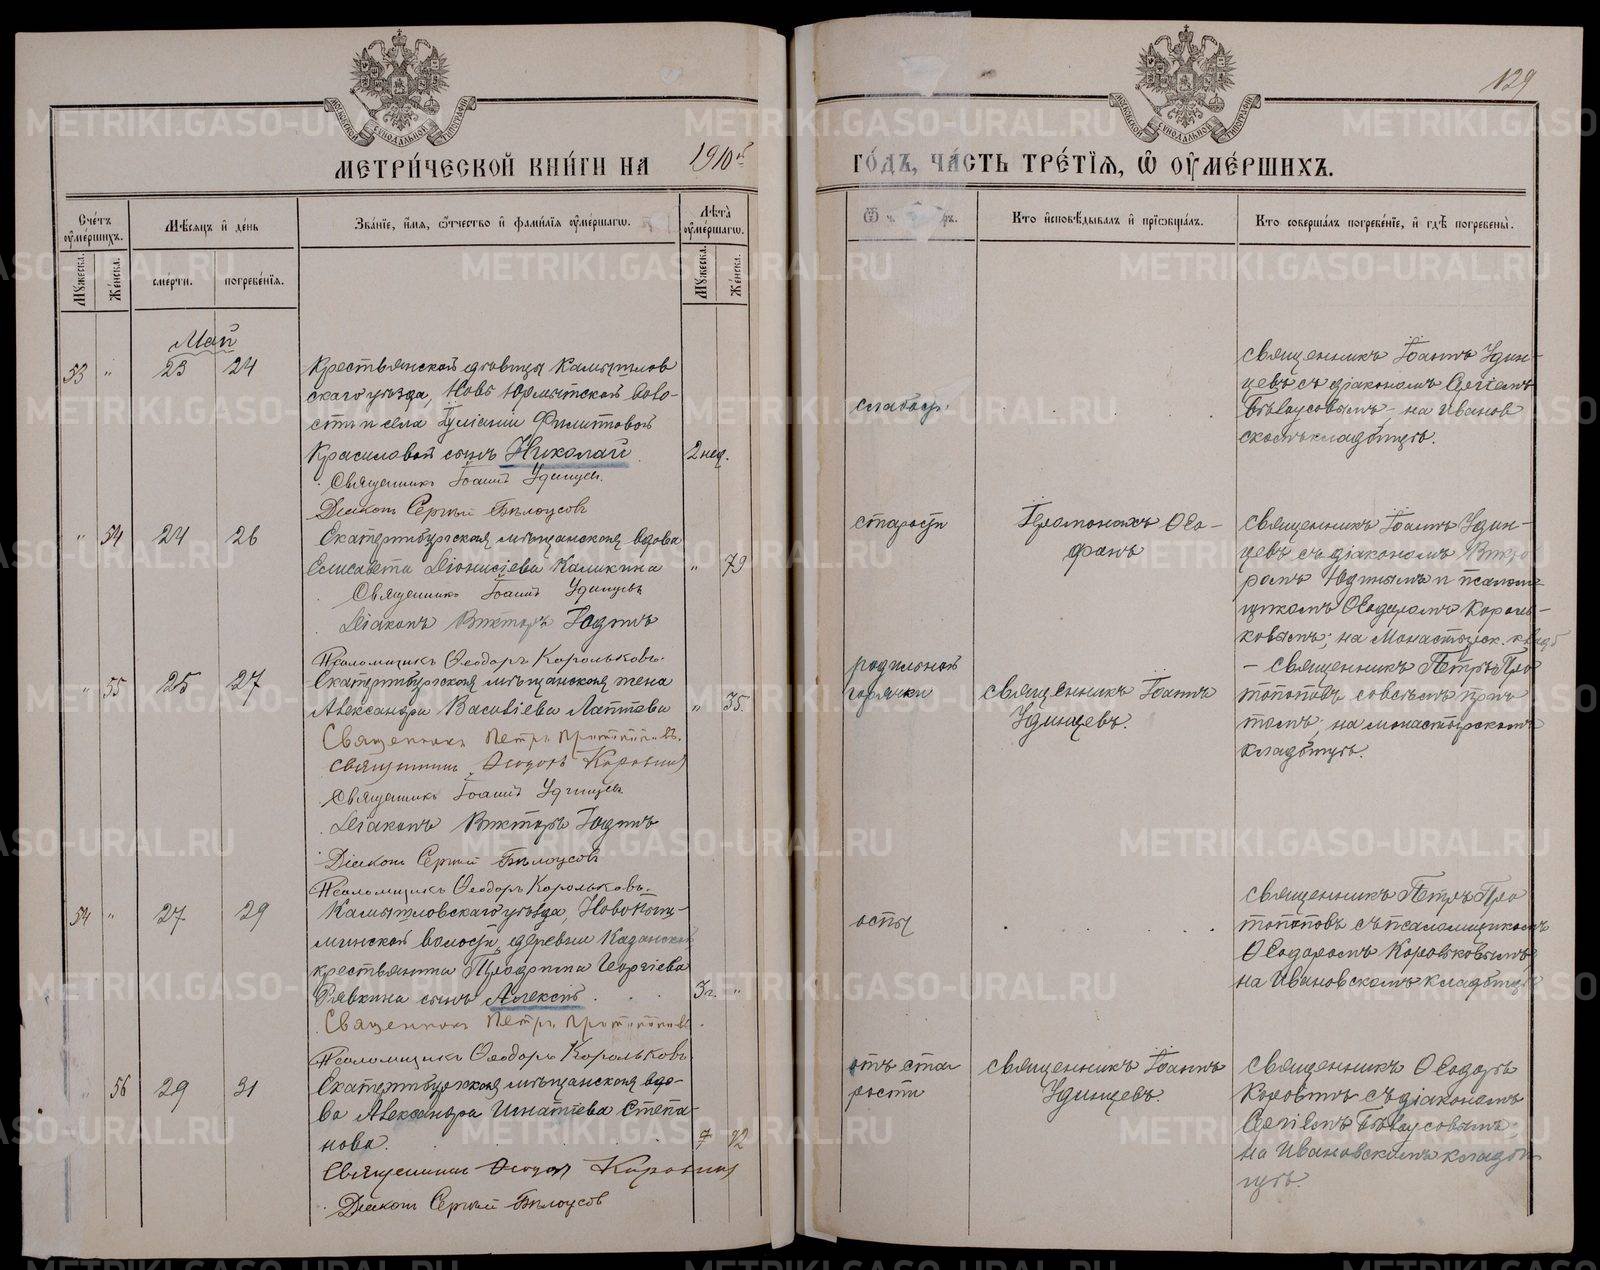 129
МЕТРИ́ЧЕСКОЙ КНИ́ГИ НА 1910й ГО́ДЪ, ЧА́СТЬ ТРЕ́ТЇѦ, Ѡ ОУ҆МЕ́РШИХЪ.
Сче́тъ оу҆ме́ршихъ.
Мꙋжескᲂ.
Же́нскᲂ.
Мѣ́сяцъ и҆ де́нь
сме́рти.
погребе́нїѧ.
Зва́нїе, и҆́мѧ, ѻ҆́тчество и҆ фамилїѧ оу҆ме́ршагѡ.
Лѣ́та оу҆ме́ршагѡ.
Кто и҆сповѣ́дывалъ и҆ прїѡбща́лъ.
Кто соверша́лъ погребе́нїе, и҆ гдѣ̀ погребены̀.
Май
53 " 23 24
Крестьянской дѣвицы Камышлов
скаго уѣзда, Ново Юрмытской воло-
сти и села Iулiанiи Филипповой
Красиловой сынъ Николай 2 нед.
Священникъ Iоаннъ Удинцевъ.
Дiаконъ Сергiй Бѣлоусовъ
слабости
священникъ Iоаннъ Удин-
цевъ съ дiакономъ Сергiемъ
Бѣлоусовымъ - на Иванов
скомъ кладбищѣ.
" 54 24 26
Екатеринбургская мѣщанская вдова
Елисавета Дiонисiева Каликина " 79
Священникъ Iоаннъ Удинцевъ
Дiаконъ Викторъ Юдинъ
Псаломщикъ Ѳеодоръ Корольковъ.
старости
Iеромонахъ Ѳео-
фанъ
священникъ Iоаннъ Удин-
цевъ съ дiакономъ Викто
ромъ Юдинымъ и псалом-
щикомъ Ѳеодоромъ Король-
ковымъ; на Монастырск. кладб
" 55 25 27
Екатеринбургская мѣщанская жена
Александра Васильева Лаптева " 35.
Священникъ Петръ Протопоповъ.
Священникъ Ѳеодоръ Коровинъ
Священникъ Iоаннъ Удинцевъ
Дiаконъ Викторъ Юдинъ
Дiаконъ Сергiй Бѣлоусовъ
Псаломщикъ Ѳеодоръ Корольковъ.
родильной
горячки
священникъ Iоаннъ
Удинцевъ.
- священникъ Петръ Про
топоповъ со всѣмъ прич
томъ, на монастырскомъ
кладбищѣ.
54 " 27 29
Камышловскаго уѣзда, Новопыш-
минской волости, деревни Казанской
крестьянина Георгiева
Рявкина сынъ Алексiй 3 г. "
Священникъ Петръ Протопоповъ.
Псаломщикъ Ѳеодоръ Корольковъ
оспы
священникъ Петръ Про
топоповъ съ псаломщикомъ
Ѳеодоромъ Корольковымъ,
на Ивановскомъ кладбищѣ
" 56 29 31
Екатеринбургская мѣщанская вдо-
ва Александра Игнатiева Степа-
нова. 72
Священникъ Ѳеодоръ Коровинъ
Дiаконъ Сергiй Бѣлоусовъ
отъ ста
рости
священникъ Iоаннъ
Удинцевъ.
священникъ Ѳеодоръ
Коровинъ съ дiакономъ
Сергiемъ Бѣлоусовымъ;
на Ивановскомъ кладби
щѣ.
METRIKI.GASO-URAL.RU